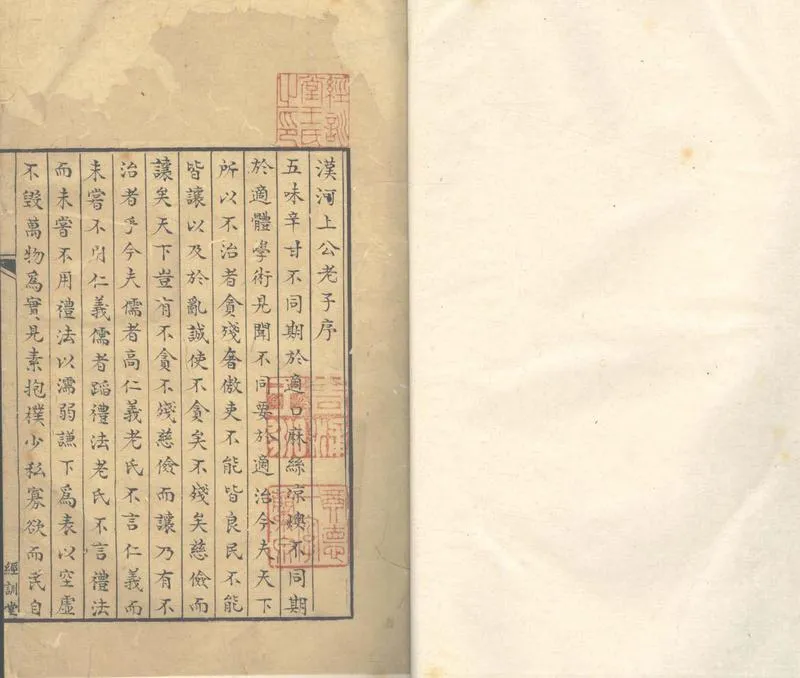 漢河上公老子序
五味辛甘不同期於適口麻絲凉燠不同期
於適體學術見聞不同要於適治今夫天下
所以不治者貪殘奢傲吏不能皆良民不能
皆讓以及於亂誠使不貪矣不殘矣慈儉而
讓矣天下豈有不貪不殘慈儉而讓乃有不
治者乎今夫儒者高仁義老氏不言仁義而
未嘗不用仁義儒者蹈禮法老氏不言禮法
而未嘗不用禮法以濡弱謙下為表以空虛
不毀萬物為實見素抱樸少私寡欲而民自
經訓堂
經訓堂王氏之印